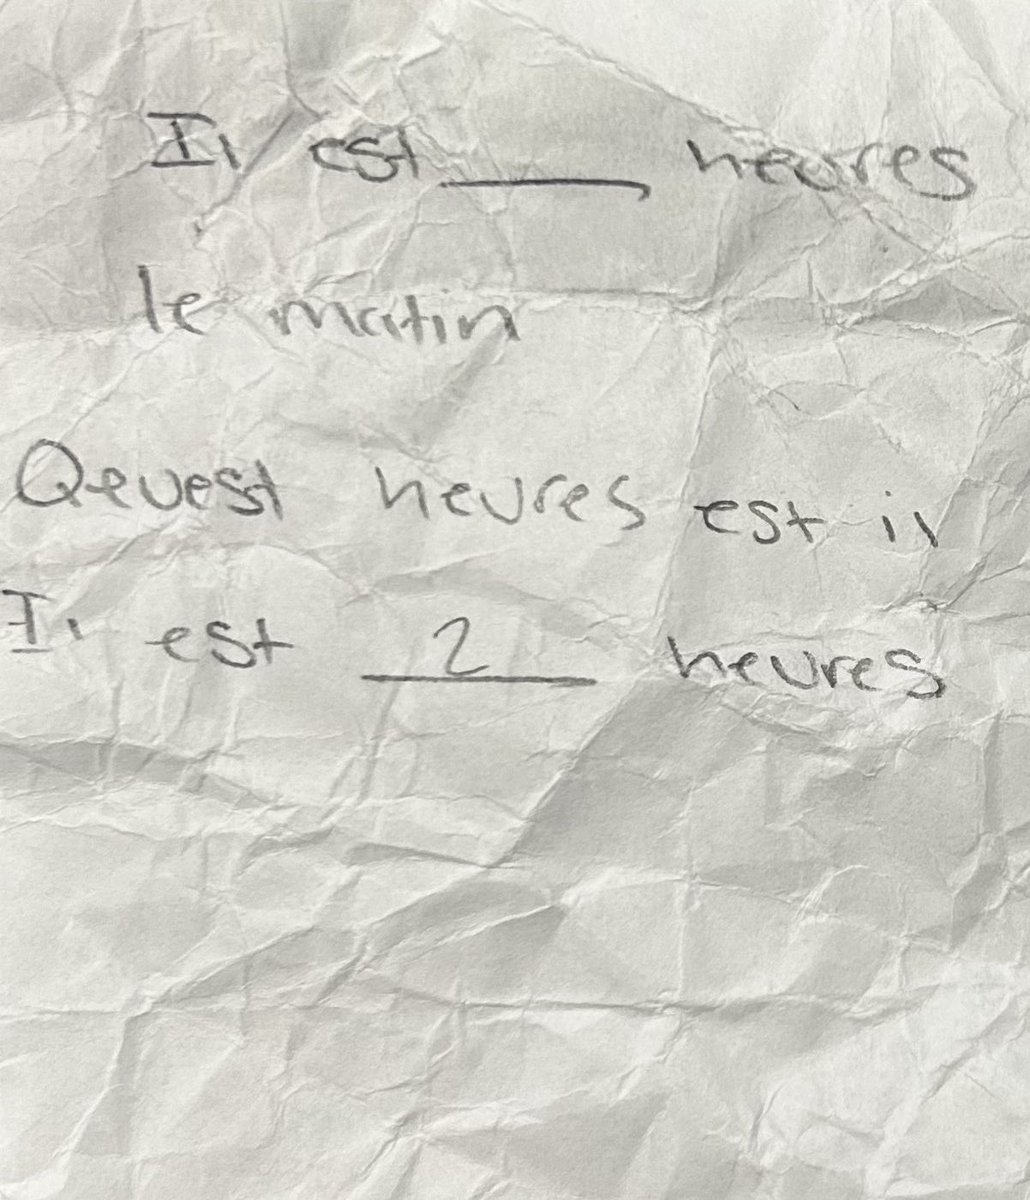 Il est ____ heures
le matin
Qeuest heures est il
Il est 2 heures